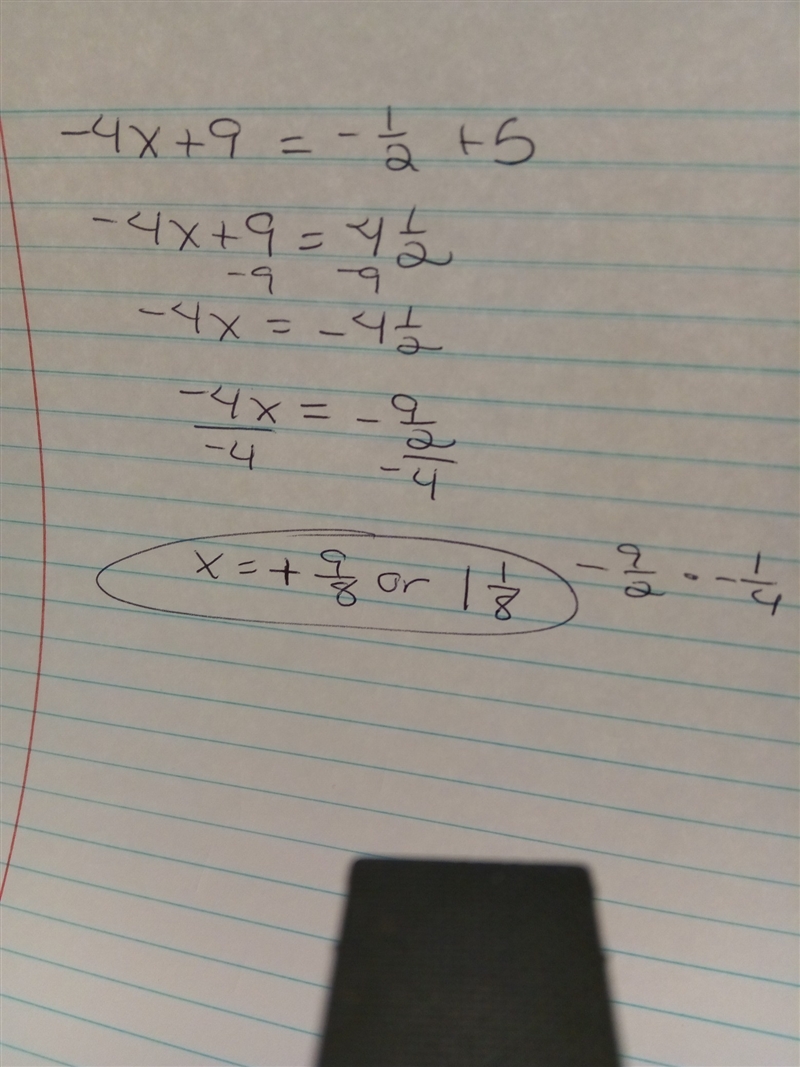 -4x+9 = -1/2 +5
-4x+9 = 4 1/2
-9 -9
-4x = -4 1/2
-4x/-4 = -9/2/-4
x = + 9/8 or 1 1/8 -9/2 · -1/4